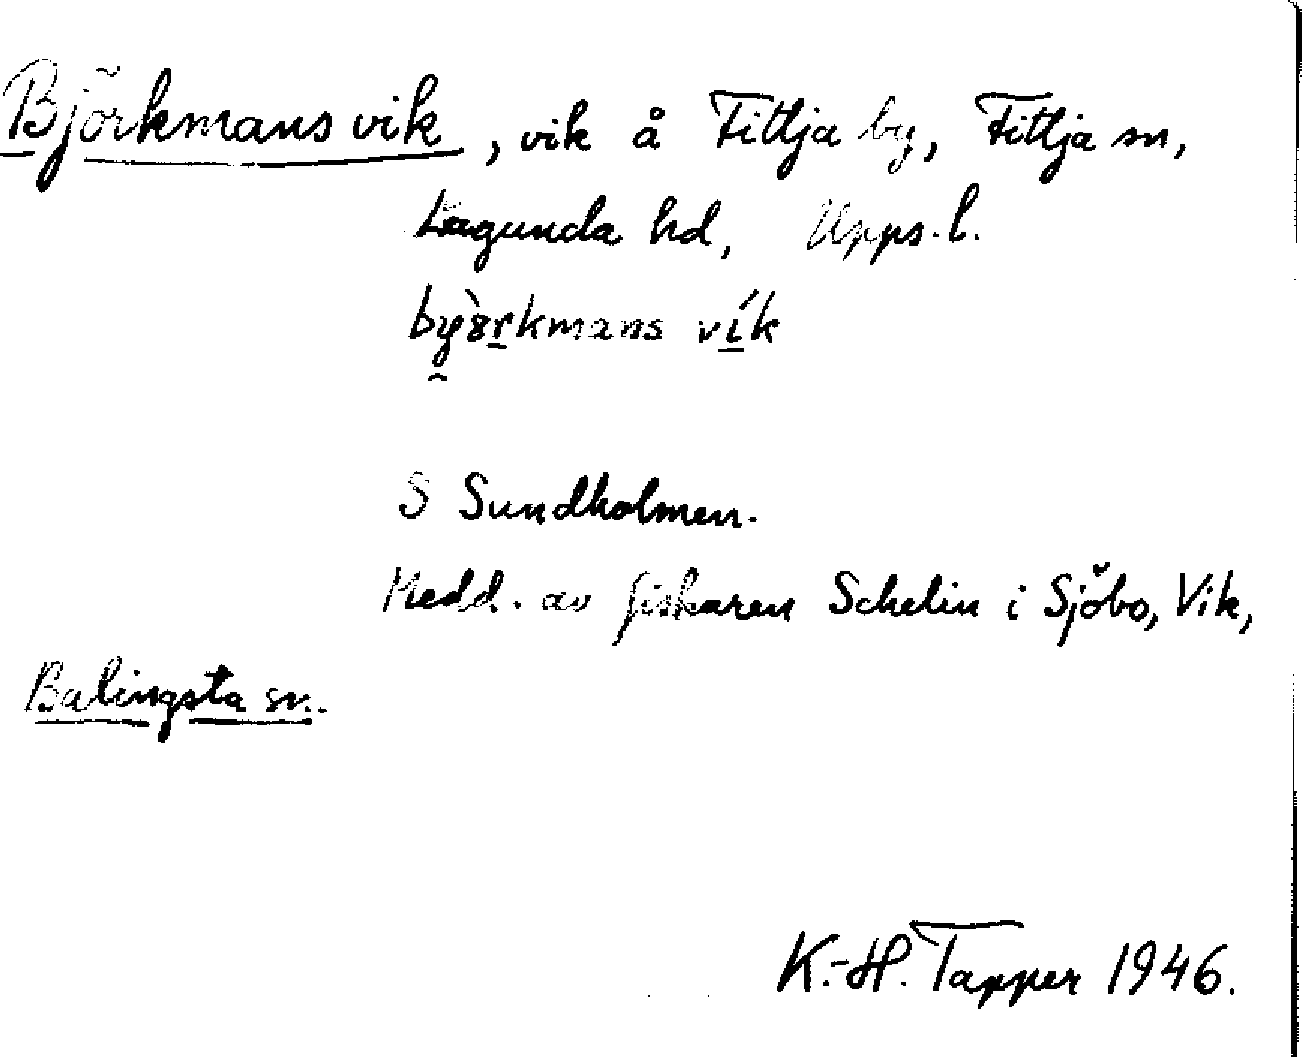 Björkmansvik, vik å Fittja by, Fittja sn,
Lagunda hd, Upps. l.
byörkmans vík
S Sundholmen.
Medd. av fiskaren Schelin i Sjöbo, Vik,
Balingsta sn.
K.-H. Tapper 1946.